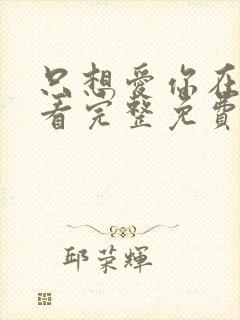 只想愛你在
看完整免費
邱荣輝